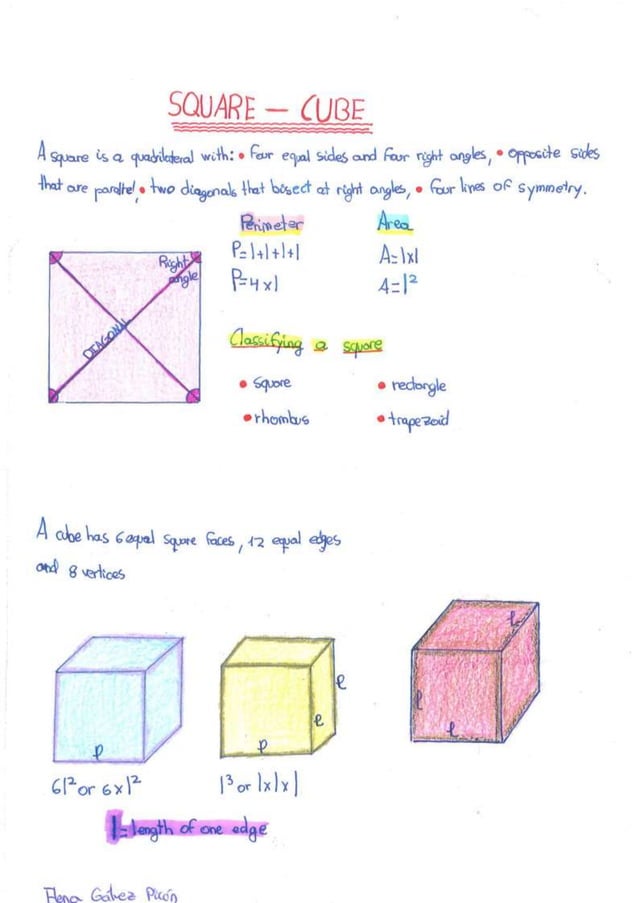 SQUARE — CUBE
A square is a quadrilateral with: • Four equal sides and four right angles, • opposite sides
that are parallel, • two diagonals that bisect at right angles, • four lines of symmetry.
Perimeter
Area
P=l+l+l+l
A=lxl
P=4xl
A=l²
Right
angle
DIAGONAL
Classifying a square
• Square
• rectangle
• rhombus
• trapezoid
A cube has 6 equal square faces, 12 equal edges
and 8 vertices
l
l
l
l
l
l
l
6l² or 6xl²
l³ or lxlxl
l=length of one edge
Elena Gálvez Picón